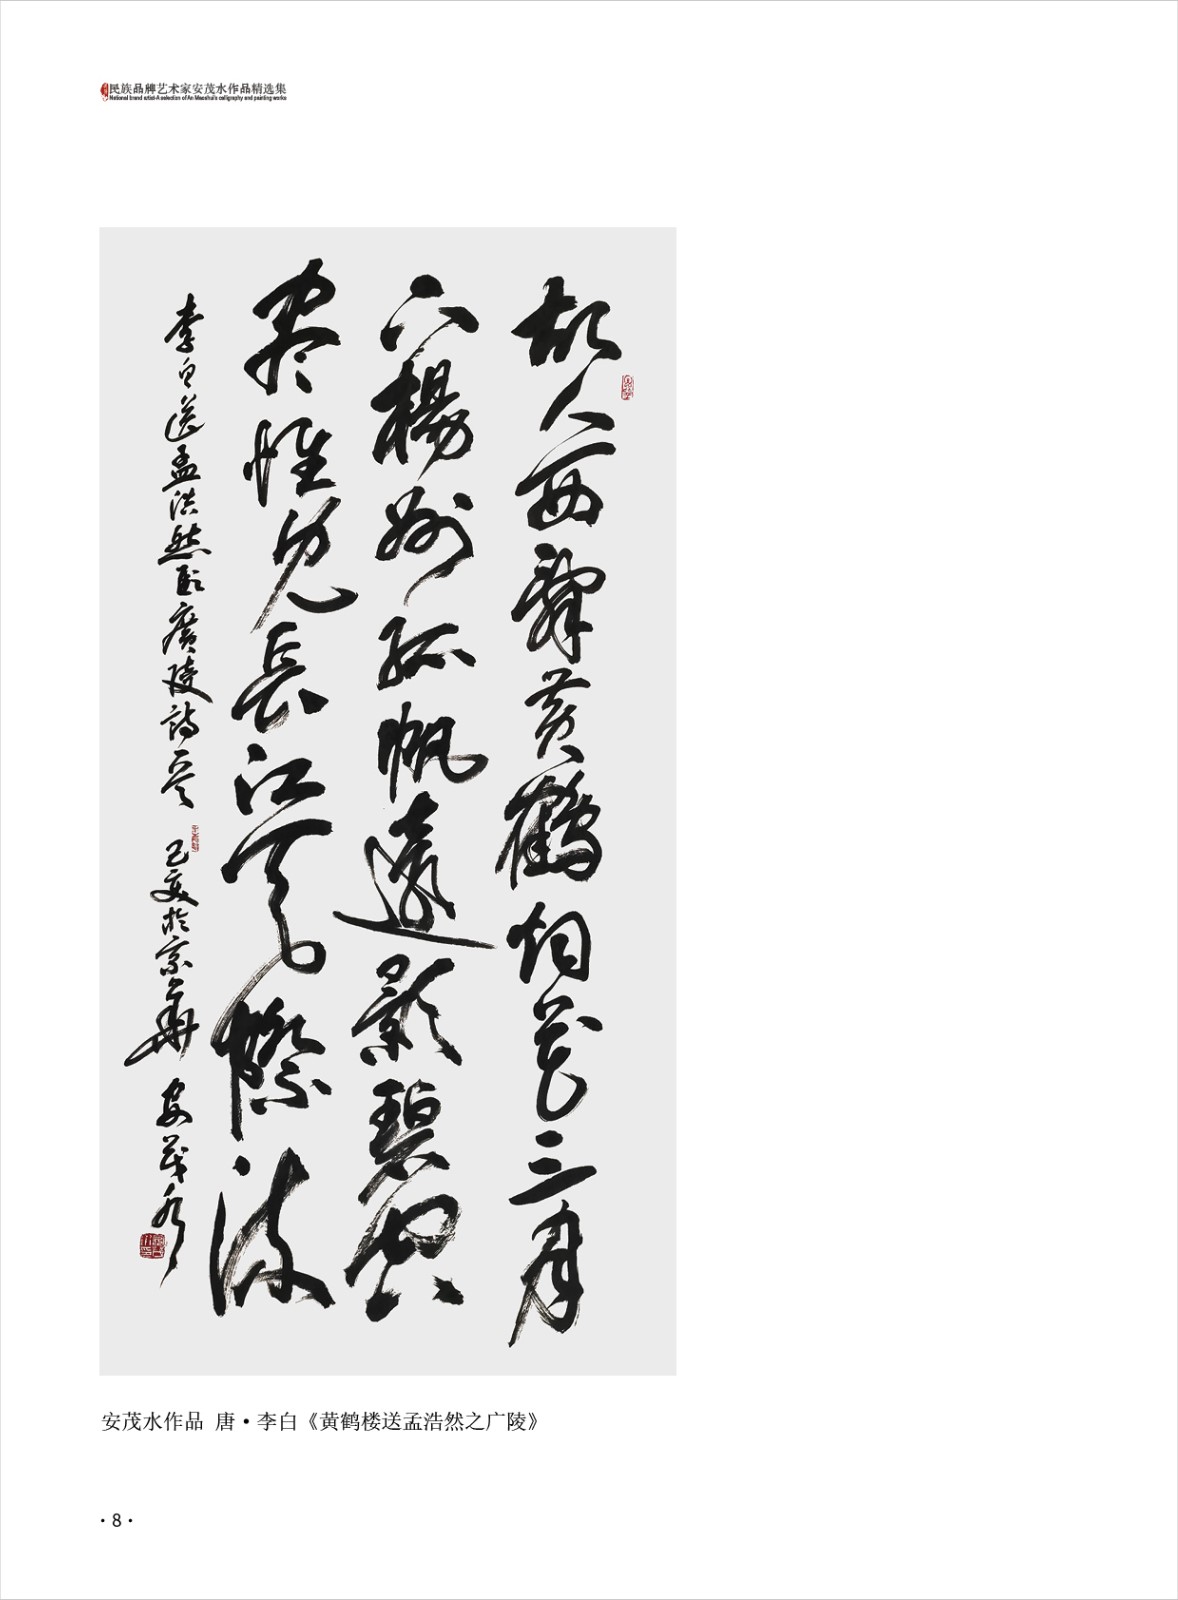 民族品牌艺术家安茂水作品精选集
National brand artist-A selection of An Maoshui's calligraphy and painting works
故人西辭黄鶴烟花三月
下楊州孤帆遠影碧空
尽惟見長江天際流
李白送孟浩然廣陵詩 己亥於京華 安茂水
安茂水作品 唐·李白《黄鹤楼送孟浩然之广陵》
·8·